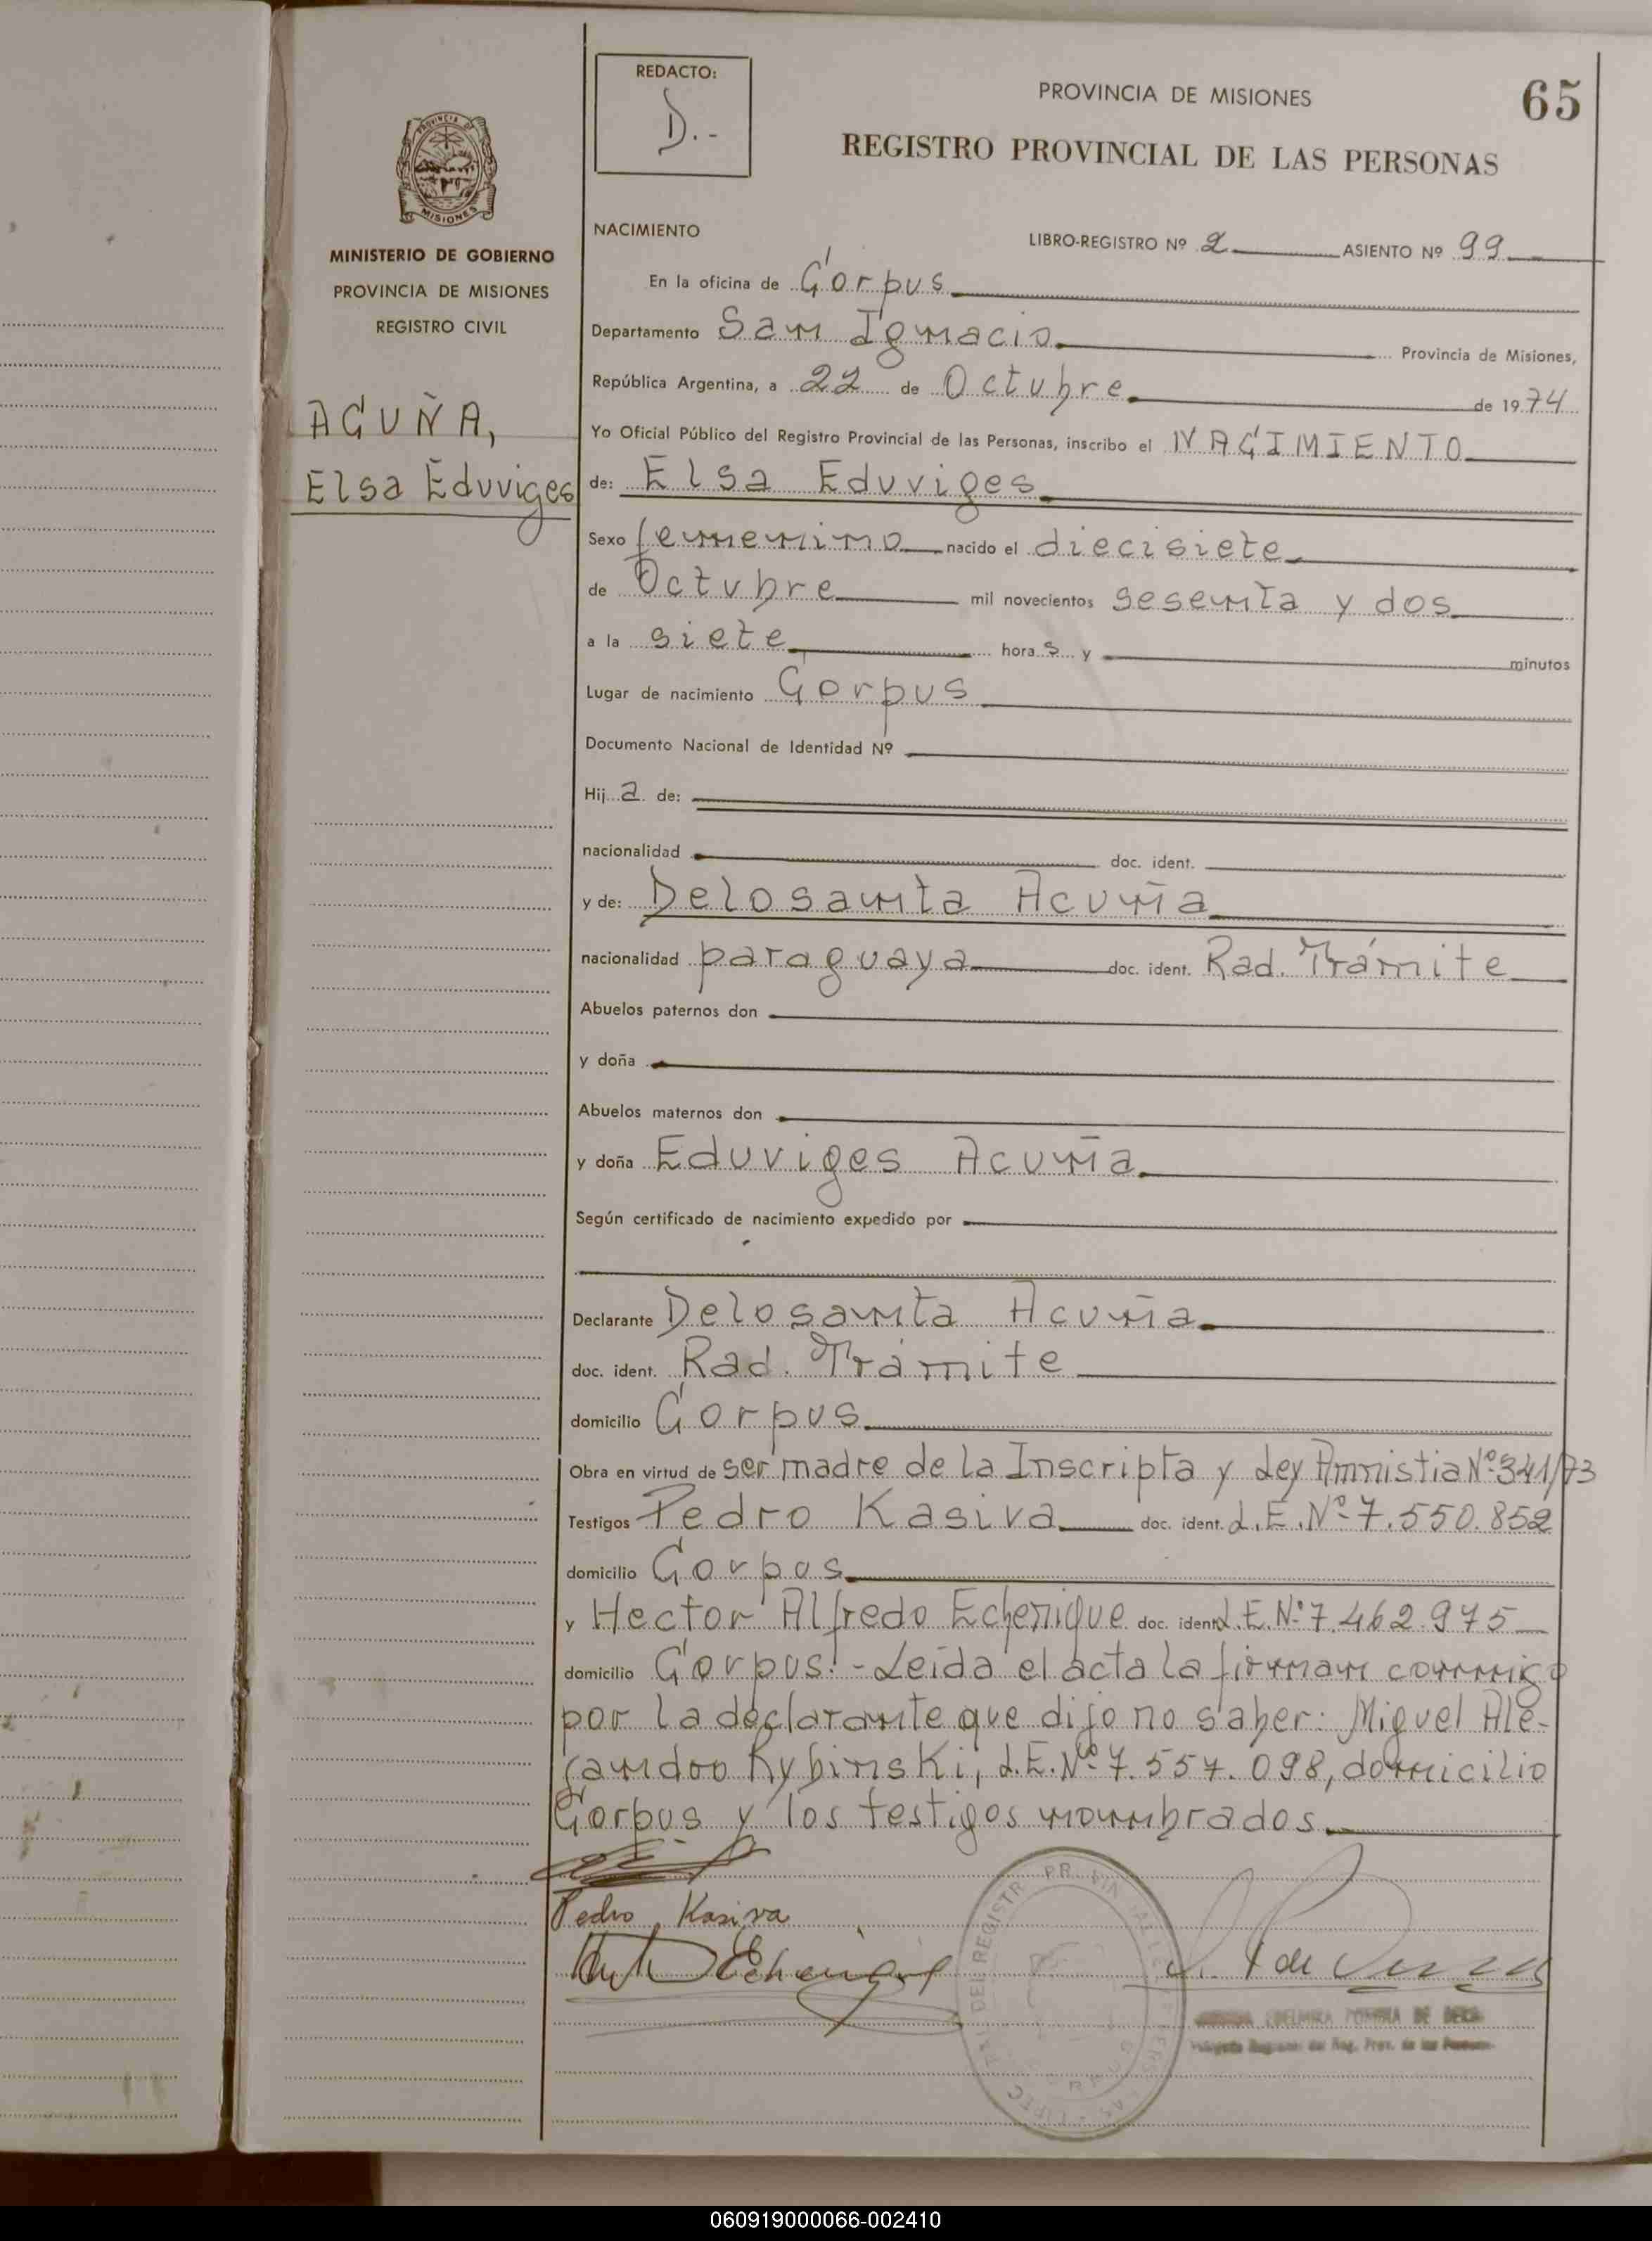 65
REDACTO:
D.-
PROVINCIA DE MISIONES
REGISTRO PROVINCIAL DE LAS PERSONAS
PROVINCIA DE
MISIONES
MINISTERIO DE GOBIERNO
PROVINCIA DE MISIONES
REGISTRO CIVIL
ACUÑA,
Elsa Eduviges
NACIMIENTO
LIBRO-REGISTRO Nº 2 ASIENTO Nº 99
En la oficina de Corpus
Departamento San Ignacio Provincia de Misiones,
República Argentina, a 22 de Octubre de 1974
Yo Oficial Público del Registro Provincial de las Personas, inscribo el NACIMIENTO
de: Elsa Eduviges
Sexo femenino nacido el diecisiete
de Octubre mil novecientos sesenta y dos
a la siete hora s y minutos
Lugar de nacimiento Corpus
Documento Nacional de Identidad Nº
Hij a de:
nacionalidad doc. ident.
y de: Delosanta Acuña
nacionalidad paraguaya doc. ident. Rad. Trámite
Abuelos paternos don
y doña
Abuelos maternos don
y doña Eduviges Acuña
Según certificado de nacimiento expedido por
Declarante Delosanta Acuña
doc. ident. Rad. Trámite
domicilio Corpus
Obra en virtud de ser madre de la Inscripta y Ley Amnistia Nº 341/73
Testigos Pedro Kasiva doc. ident. L.E.Nº 7.550.852
domicilio Corpus
y Hector Alfredo Echenique doc. ident L.E.Nº 7.462.975
domicilio Corpus.- Leida el acta la firman conmigo
por la declarante que dijo no saber: Miguel Ale-
jandro Rybinski, L.E.Nº 7.557.098, domicilio
Corpus y los testigos nombrados
Pedro Kasiva
DE DEKA
Reg. Prov. de las Personas
060919000066-002410